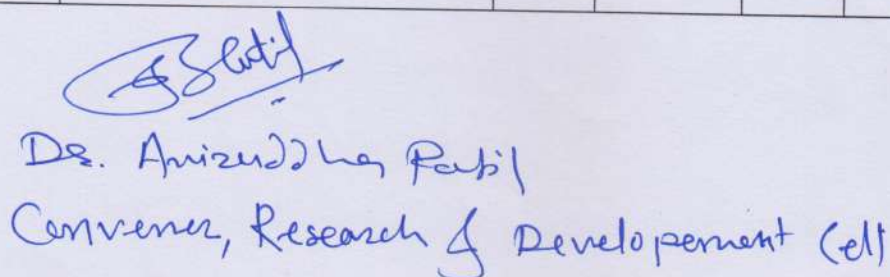 Dr. Aniruddha Patil
Convener, Research & Developement Cell